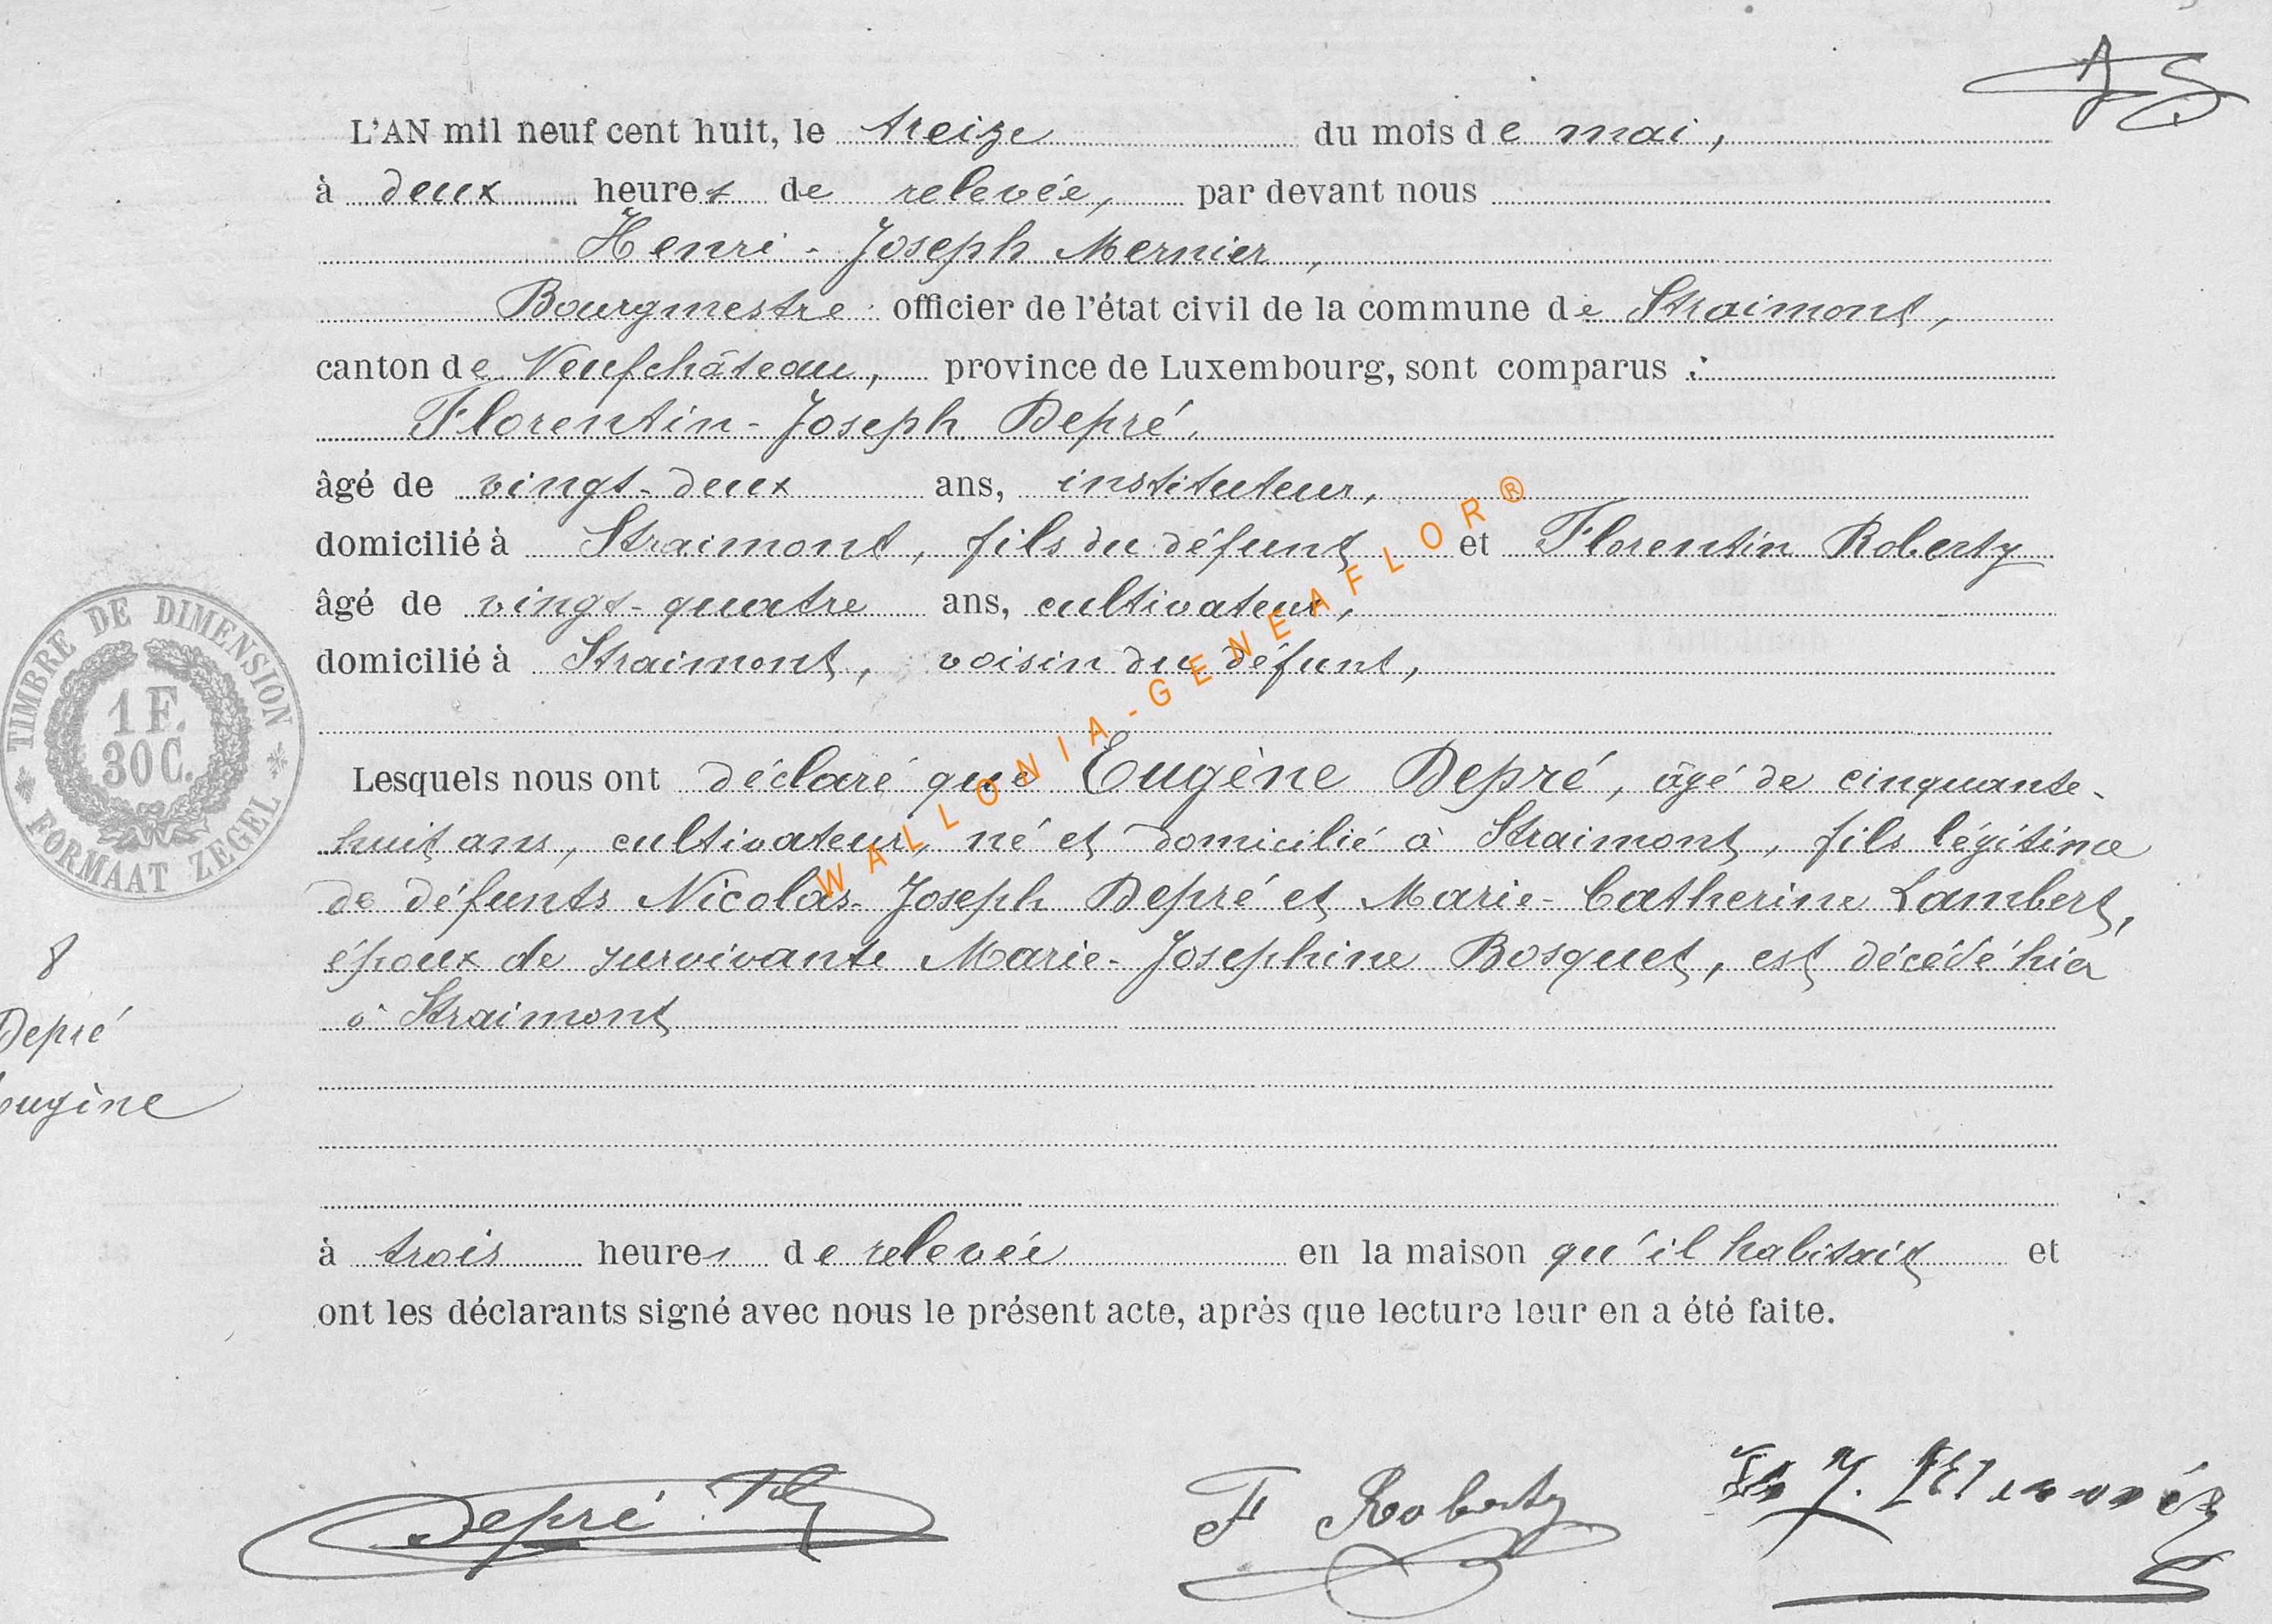 L'AN mil neuf cent huit, le treize du mois de mai,
à deux heures de relevée, par devant nous
Henri-Joseph Mernier,
Bourgmestre officier de l'état civil de la commune de Straimont,
canton de Neufchâteau, province de Luxembourg, sont comparus :
Florentin-Joseph Depré,
âgé de vingt-deux ans, instituteur,
domicilié à Straimont, fils du défunt et Florentin Roberty
âgé de vingt-quatre ans, cultivateur,
domicilié à Straimont, voisin du défunt,
Lesquels nous ont déclaré que Eugène Depré, âgé de cinquante-
huit ans, cultivateur, né et domicilié à Straimont, fils légitime
de défunts Nicolas-Joseph Depré et Marie-Catherine Lambert,
époux de survivante Marie-Josephine Bosquet, est décédé hier
à Straimont
à trois heures de relevée en la maison qu'il habitait et
ont les déclarants signé avec nous le présent acte, après que lecture leur en a été faite.
TIMBRE DE DIMENSION
1 F.
30 C.
FORMAAT ZEGEL
8
Depré
Eugène
WALLONIA-GENEAFLOR®
Depré Fl
F Roberty